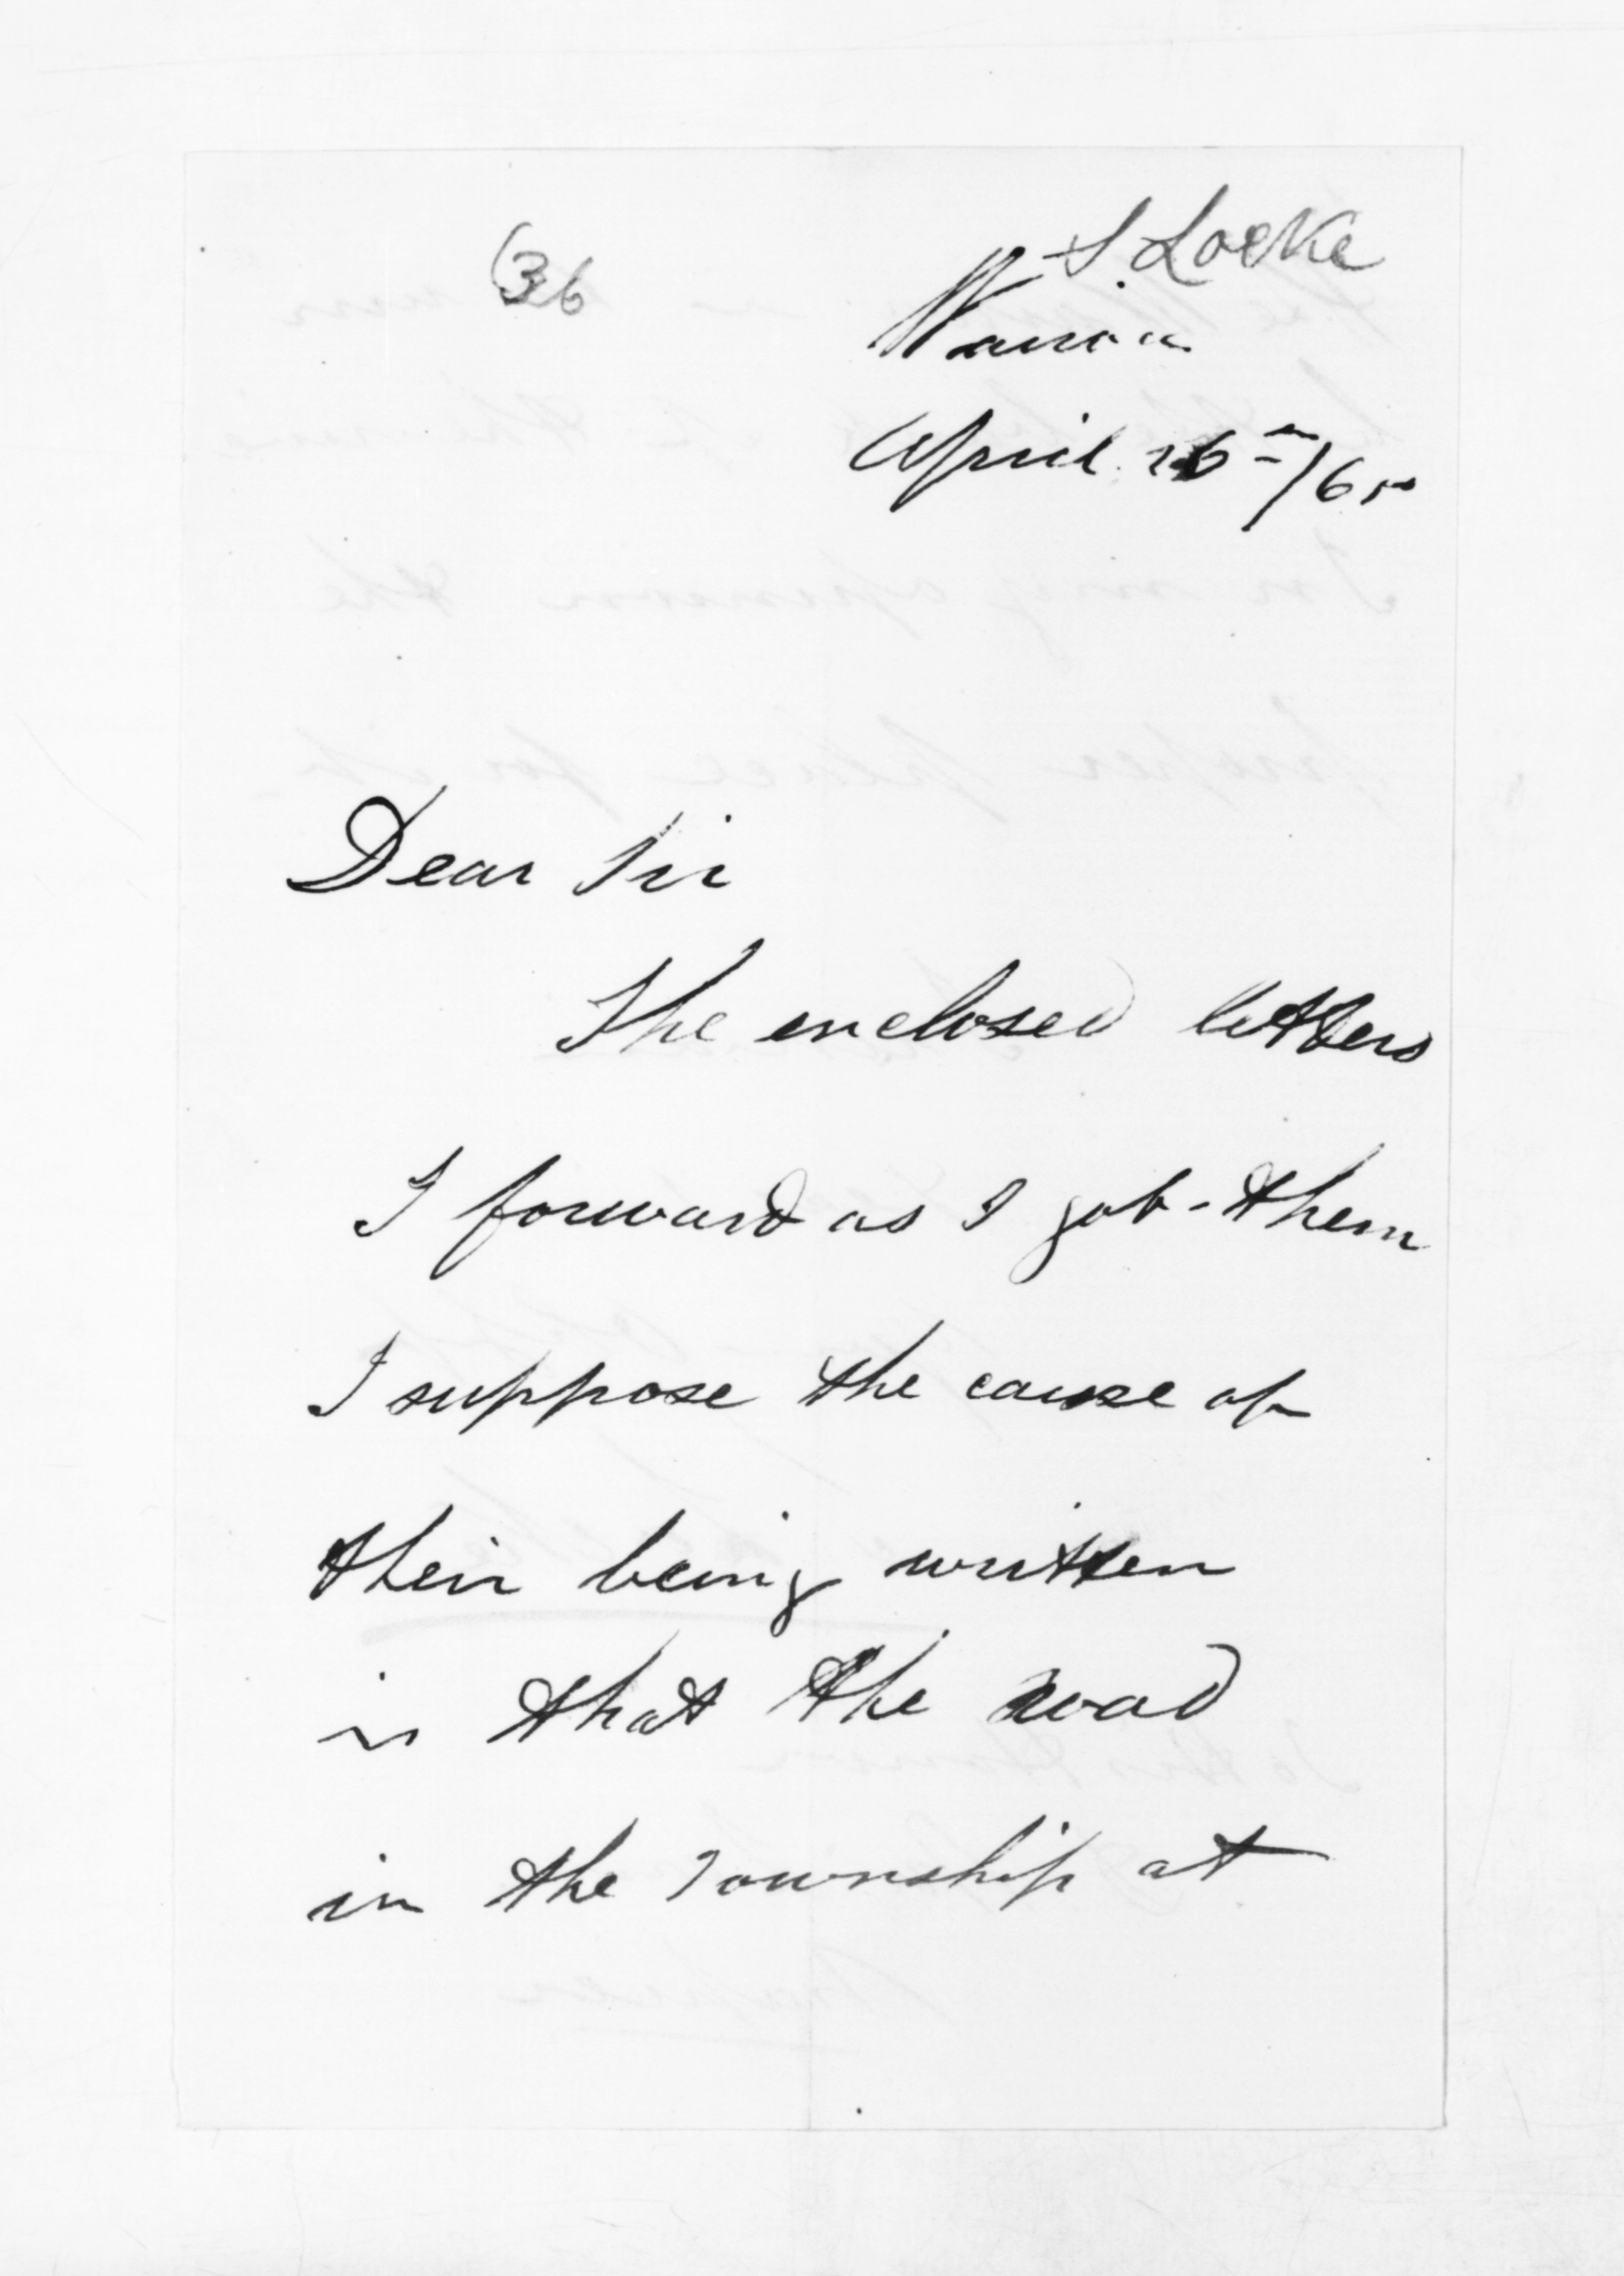 (36
S Locke
Wairoa
April 26th/65
Dear Sir
The enclosed letters
I forward as I got them
I suppose the cause of
their being written
is that the road
in the Township at